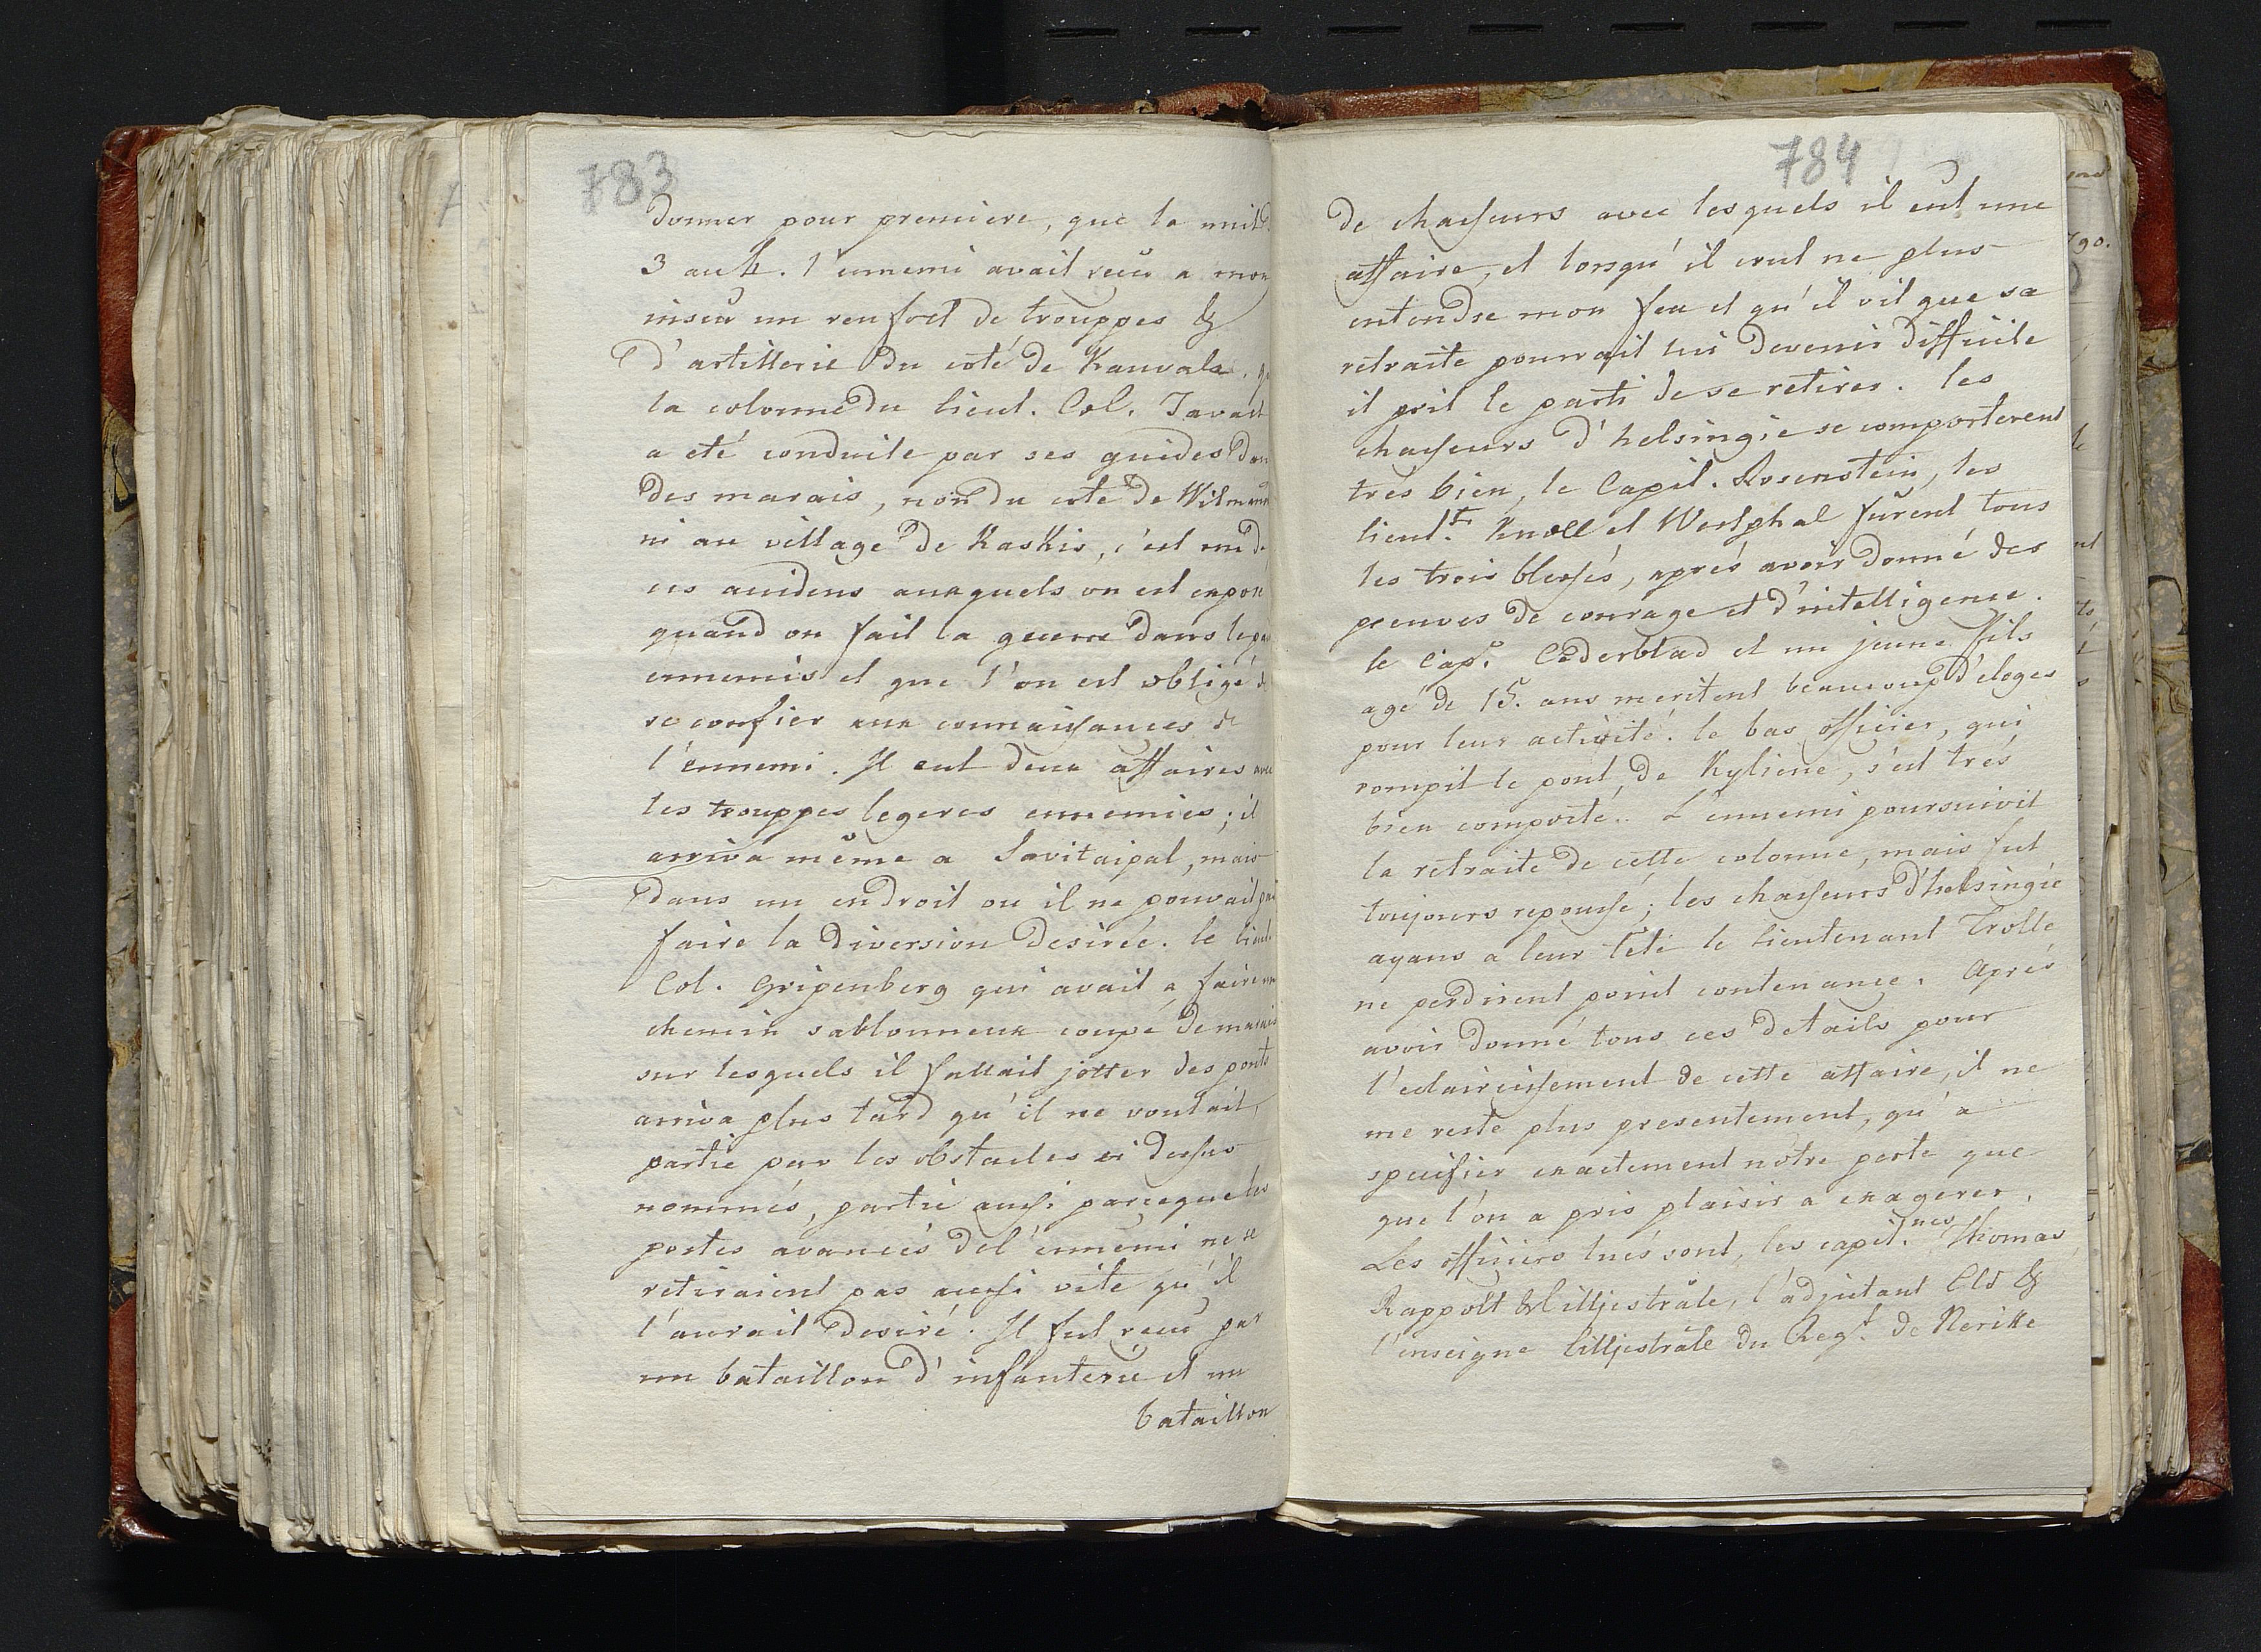 783
donner pour premiere, que la nuit
3 au 4. l'ennemi avait reçu a mon
insçu un renfort de trouppes &
d'artillerie du coté de Kauvala.
la colonne du lieut. Col. Javast
a eté conduite par ses guides dans
des marais, non du coté de
ni au village de Kaskis, c'est un de
ces accidens auxquels on est exposé
quand on fait la guerre dans le
ennemis et que l'on est obligé de
se confier aux connaissances de
l'ennemi. Il eut deux affaires avec
les trouppes legeres ennemies; il
arriva même a Savitaipal, mais
dans un endroit ou il ne pouvait pas
faire la diversion desirée. le lieut.
Col. Gripenberg qui avait a faire un
chemin sablonneux coupé de marais
sur lesquels il fallait jetter des ponts
arriva plus tard qu'il ne voulait,
partie par les obstacles ci dessus
nommés, partie aussi parceque les
postes avancés de l'ennemi ne se
retiraient pas aussi vite qu'il
l'aurait desiré. Il fut recu par
un bataillon d'infanterie et un
bataillon
784
de chasseurs avec lesquels il eut une
affaire, et lorsqu'il crut ne plus
entendre mon feu et qu'il vit que sa
retraite pourrait lui devenir difficile
il prit le parti de se retirer. les
chasseurs d'helsingie se comporterent
tres bien, le Capit. Rosenstein, les
lieut.ts Knoll et Westphal fûrent tous
les trois blessés, aprés avoir donné des
preuves de courage et d'intelligence.
le Cap. Cederblad et un jeune fils
agé de 15. ans meritent beaucoup d'eloges
pour leur activité. le bas officier, qui
rompit le pont de Kyliene, s'est trés
bien comporté. L'ennemi poursuivit
la retraite de cette colonne, mais fut
toujours repoussé; les chasseurs d'helsingie
ayans a leur tête le lieutenant Trolle
ne perdirent point contenance. Aprés
avoir donné tous ces details pour
l'eclaircissement de cette affaire, il ne
me reste plus presentement, qu'a
specifier exactement nôtre perte que
que l'on a pris plaisir a exagerer.
Les officiers tués sont, les capit.nes Thomas
Rappolt & Lilljestråle, l'adjutant Els &
l'enseigne Lilljestråle du Regt. de Nerike